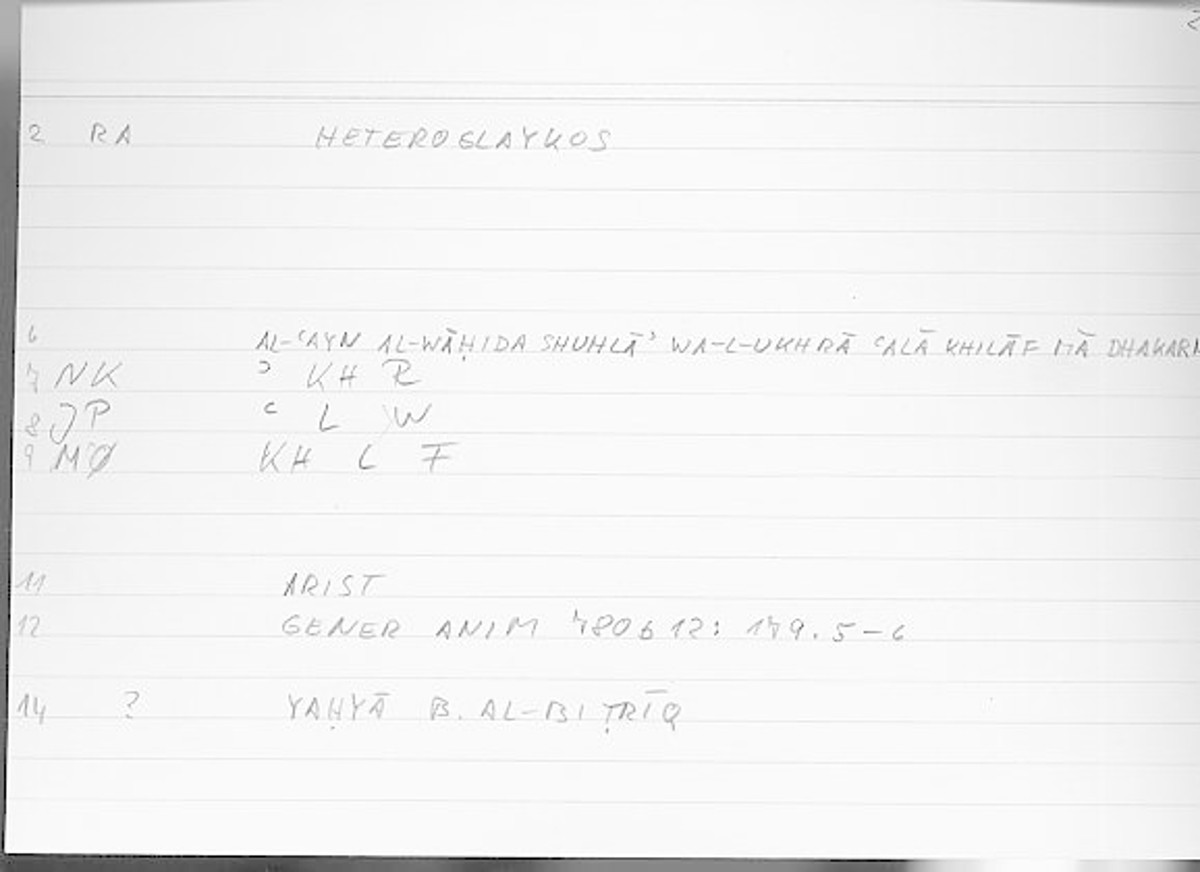 2 RA HETEROGLAYKOS
6 AL-ʿAYN AL-WĀḤIDA SHUHLĀʾ WA-L-UKHRĀ ʿALĀ KHILĀF MĀ DHAKARN
7 NK ʾ KH R
8 JP ʿ L W
9 MØ KH L F
11 ARIST
12 GENER ANIM 780b12: 179.5–6
14 ? YAḤYĀ B. AL-BIṬRĪQ